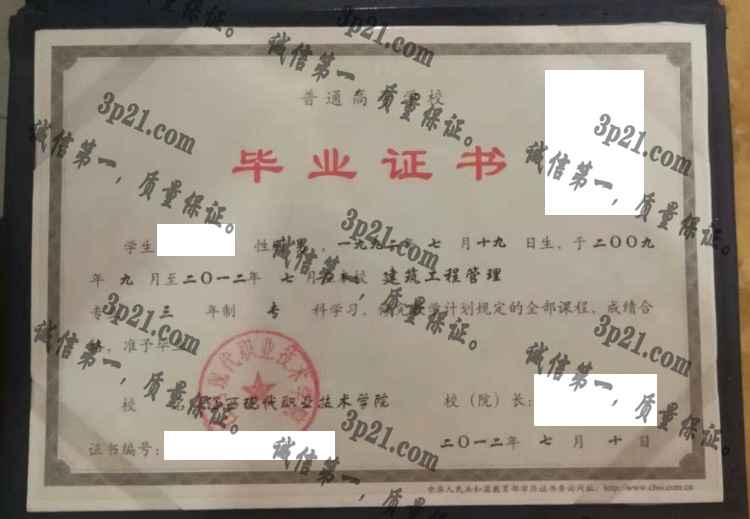 普通高等学校
毕业证书
学生 性别 男，一九九二年 七 月十九日生，于二〇〇九
年 九 月至二〇一二年 七 月在本校 建筑工程管理
专业 三 年制 专 科学习，修完教学计划规定的全部课程，成绩合
格，准予毕业。
校 名：江西现代职业技术学院 校（院）长：
证书编号： 二〇一二年 七 月 十 日
中华人民共和国教育部学历证书查询网址：http://www.chsi.com.cn
现代职业技术学院
3p21.com
诚信第一，质量保证。
3p21.com
诚信第一，质量保证。
3p21.com
诚信第一，质量保证。
3p21.com
诚信第一，质量保证。
3p21.com
诚信第一，质量保证。
3p21.com
诚信第一，质量保证。
3p21.com
诚信第一，质量保证。